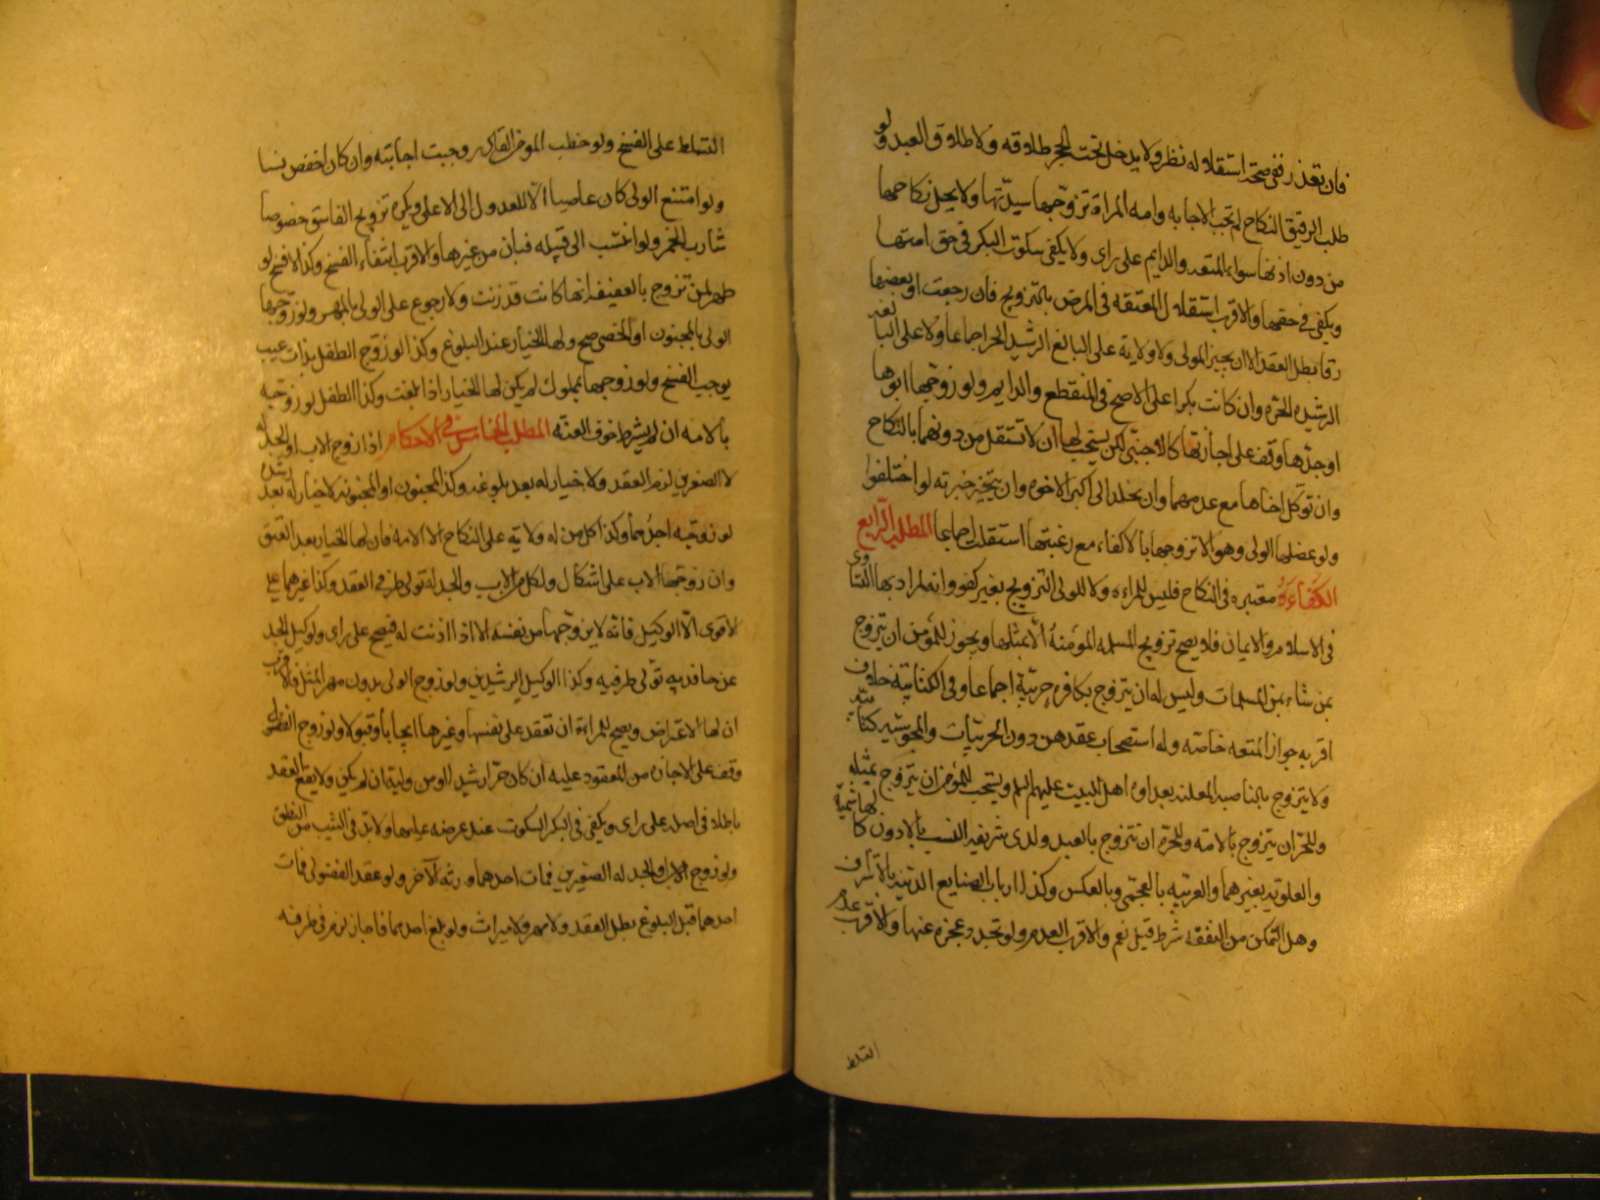 فان تعذر ففي صحة استقلاله نظر ولا يدخل تحت الحجر طلاقه ولا طلاق العبد ولو
طلب الرقيق النكاح لم تجب الاجابة وامه المراة تزوجها سيدتها ولا يحل نكاحها
من دون اذنها سواء المتعة والدايم على راي ولا يكفي سكوت البكر في حق امتها
ويكفي في حقها والاقرب استقلال المعتقه في المرض بالتزويج فان رجعت او بعضها
رقا بطل العقد الا ان يجيز المولى ولا ولاية على البالغ الرشيد الحر اجماعا ولا على البالغة
الرشيده الحره وان كانت بكرا على الاصح في المنقطع والدايم ولو زوجها ابوها
او جدها وقف على اجازتها كالاجنبي لكن يستحب لها ان لا تستقل من دونهما بالنكاح
وان توكل اخاها مع عدمهما وان تخلد الى اكبر الاخوه وان تتخير خيرته لو اختلفوا
ولو عضلها الولي وهو الا تزوجها بالاكفاء مع رغبتها استقلت اجماعا المطلب الرابع
الكفاءة معتبره في النكاح فليس للمراءه ولا للولي التزويج بغير كفو وانه المراد بها التساوي
في الاسلام والايمان فلا يصح تزويج المسلمه المؤمنة الا بمثلها ويجوز للمؤمن ان يتزوج
بمن شاء من المسلمات وليس له ان يتزوج بكافره حربية اجماعا وفي الكتابية خلاف
اقربه جواز المتعه خاصه وله استصحاب عقدهن دون الحربيات والمجوسيه كتابيه
ولا يتزوج بالناصبه المعلنه بعداوه اهل البيت عليهم السلم ويستحب للمؤمن ان يتزوج بمثله
وللحر ان يتزوج بالامه وللحره ان تتزوج بالعبد ولدى شريفه النسب بالادون كالهاشمية
والعلوية بغيرهما والعربيه بالعجمي وبالعكس وكذا ارباب الصنايع الدنية بالاشراف
وهل التمكن من النفقه شرط قيل نعم والاقرب العدم ولو تجدد عجزه عنها والاقرب عدم
التسلط
التسلط على الفسخ ولو خطب المؤمن القادر وجبت اجابته وان كان اخفض نسبا
ولو امتنع الولي كان عاصيا الا للعدول الى الاعلى ويكره تزويج الفاسق خصوصا
شارب الخمر ولو انتسب الى قبيله فبان من غيرها والاقرب انتفاء الفسخ وكذا لا فسخ لو
ظهر لمن تزوج بالعفيفه انها كانت قد زنت ولا رجوع على الولي بالمهر ولو زوجها
الولي بالمجنون او الخصي صح ولها الخيار عند البلوغ وكذا لو زوج الطفل بذات عيب
يوجب الفسخ ولو زوجها بمملوك لم يكن لها الخيار اذا بلغت وكذا الطفل لو زوجه
بالامه ان لم يشترط خوف العنت المطلب الخامس في الاحكام اذا زوج الاب او الجد له
لا الصغيرين لزم العقد ولا خيار له بعد بلوغه وكذا المجنون او المجنونه لا خيار له بعد رشده
لو زوجه احدهما وكذا كل من له ولاية على النكاح الا الامه فان لها الخيار بعد العتق
وان زوجها الاب على اشكال ولكل من الاب والجد له تولى طرفي العقد وكذا غيرهما على
الاقوى الا الوكيل فانه لا يزوجها من نفسه الا اذا اذنت له فيصح على راي ولوكيل الجد
عن حافديه تولى طرفيه وكذا الوكيل الرشيدين ولو زوج الولي بدون مهر المثل فالاقرب
ان لها الاعتراض ويصح للمراءة ان تعقد على نفسها وغيرها ايجابا وقبولا ولو زوج الفضولي
وقف على الاجازه من المعقود عليه ان كان حرا رشيدا او من وليه ان لم يكن ولا يقع العقد
باطلا في اصله على راي ويكفي في البكر السكوت عند عرضه عليها ولابد في الثيب من النطق
ولو زوج الاب او الجد له الصغيرين فمات احدهما ورثه الآخر ولو عقد الفضولي فمات
احدهما قبل البلوغ بطل العقد ولا مهر ولا ميراث ولو بلغ احدهما فاجاز لزم في طرفه